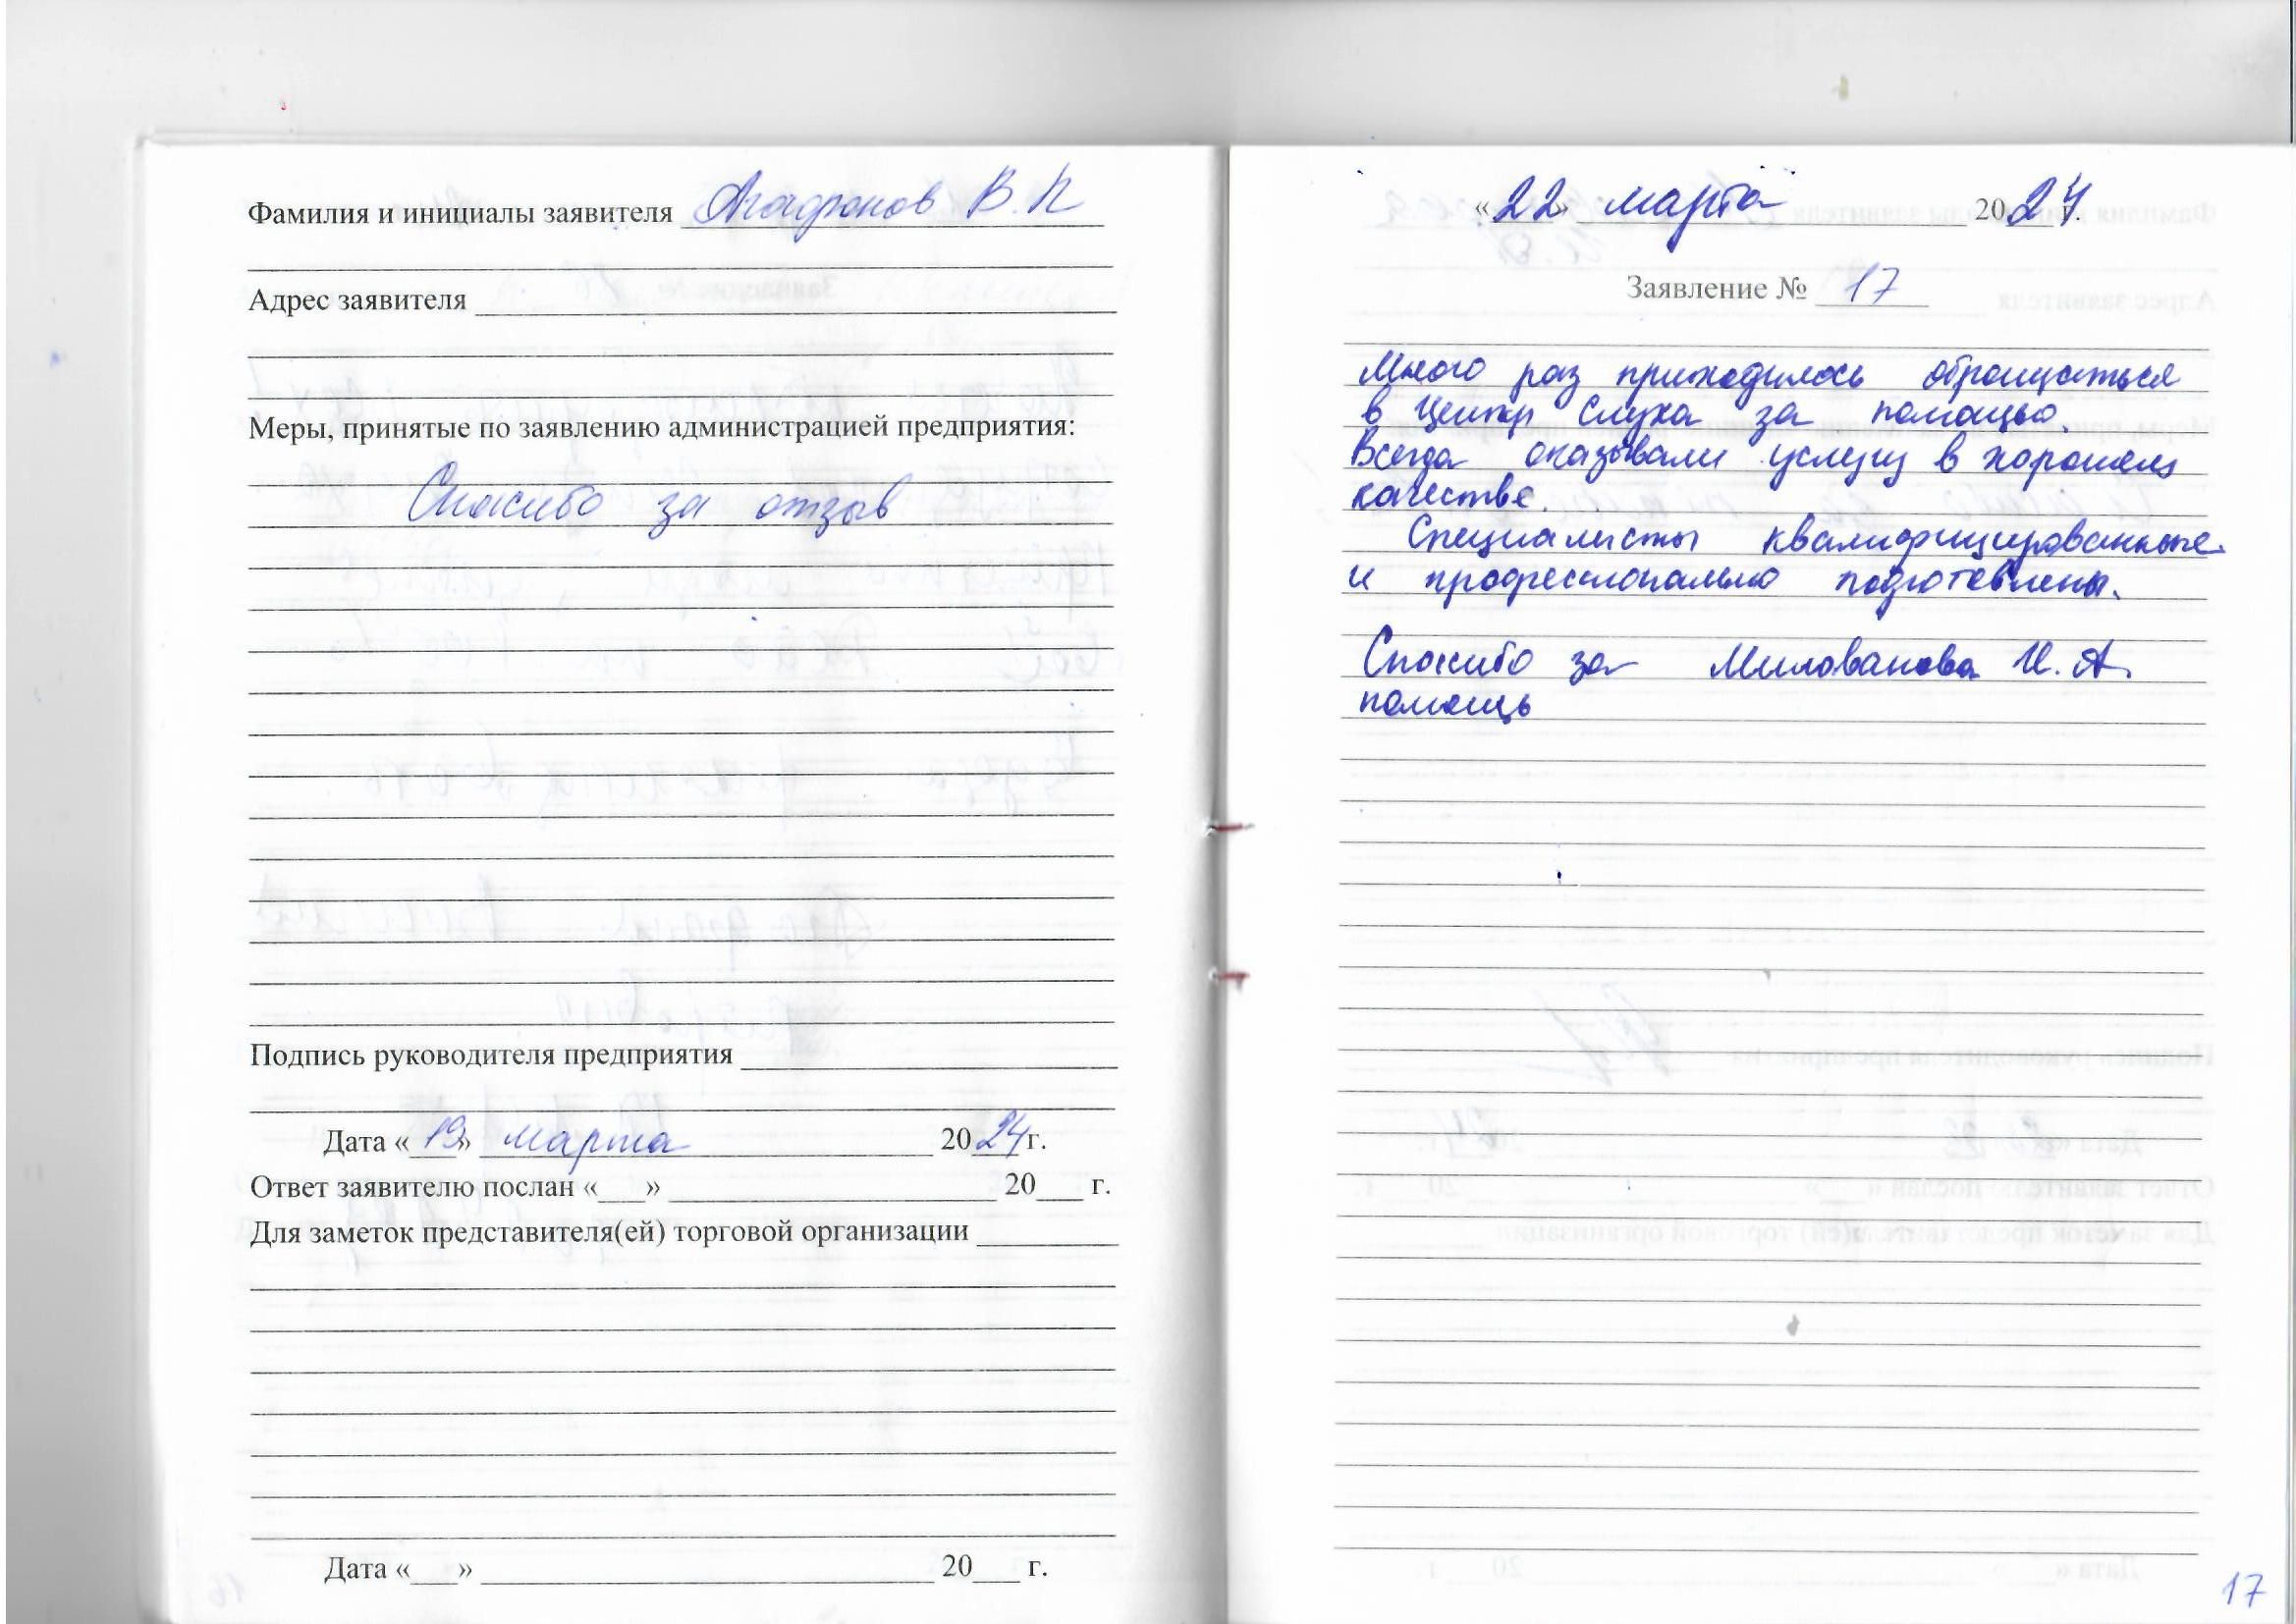 Фамилия и инициалы заявителя Агафонов В. П
Адрес заявителя
Меры, принятые по заявлению администрацией предприятия:
Спасибо за отзыв
Подпись руководителя предприятия
Дата «19» марта 2024 г.
Ответ заявителю послан «___» 20___ г.
Для заметок представителя(ей) торговой организации
Дата «___» 20___ г.
«22» марта 2024 г.
Заявление № 17
Много раз приходилось обращаться
в Центр Слуха за помощью.
Всегда оказывали услугу в хорошем
качестве.
Специалисты квалифицированные
и профессионально подготовлены.
Спасибо за Милованова И. А.
помощь
17